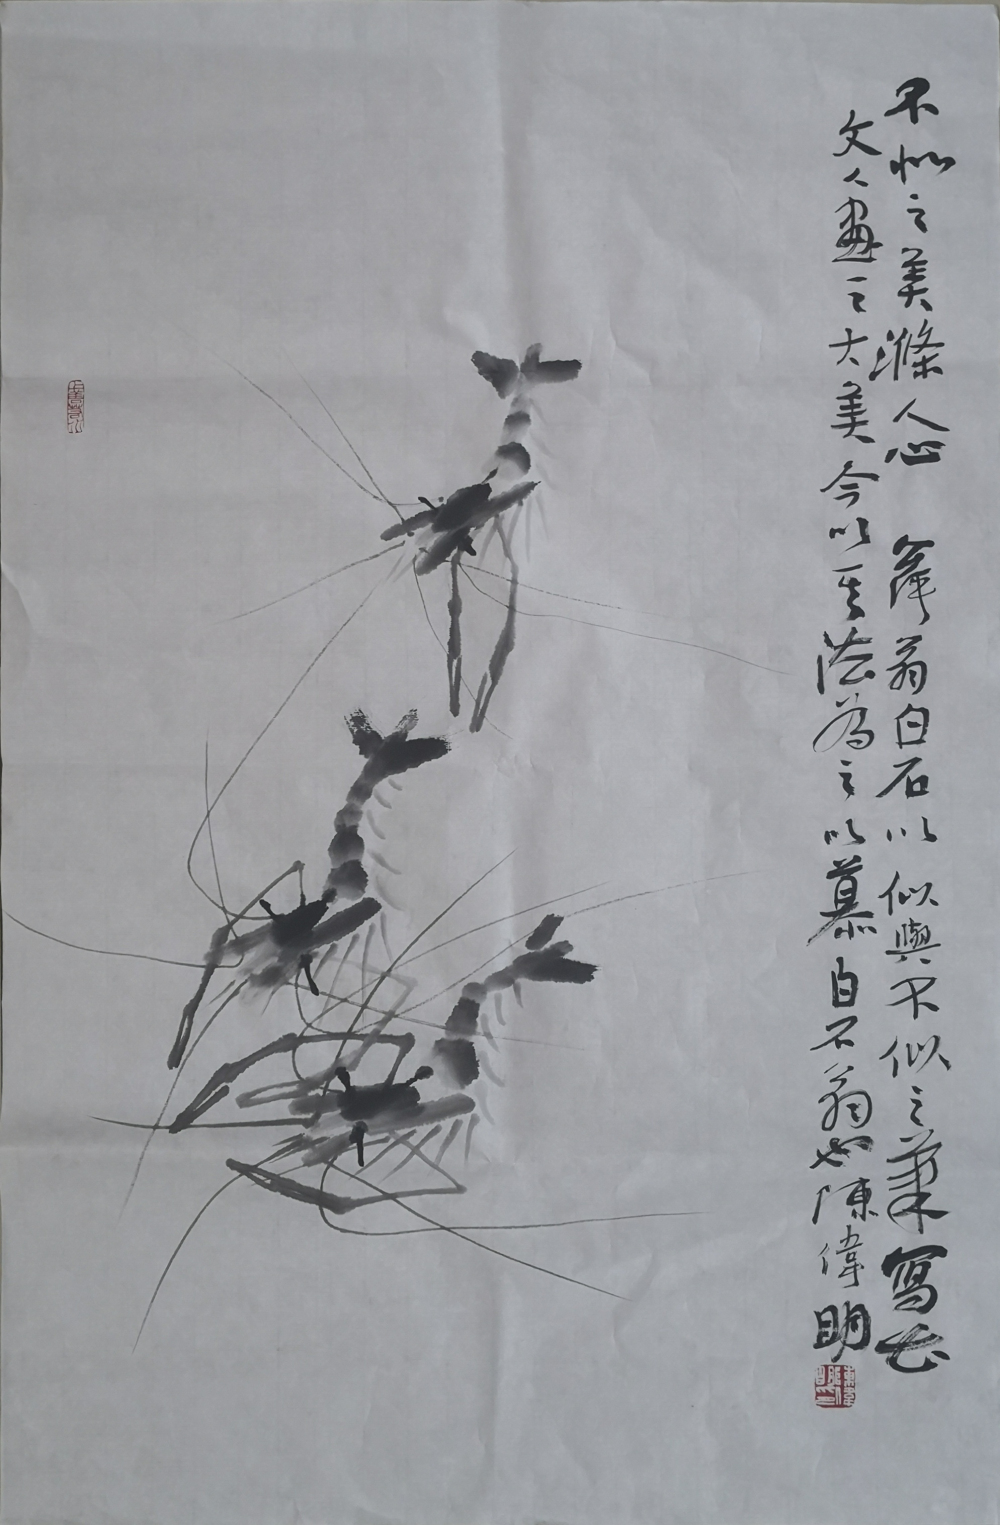 不似之美滌人心 萍翁白石以似與不似之筆寫出
文人畫之大美今以其法為之以慕白石翁也陳偉明